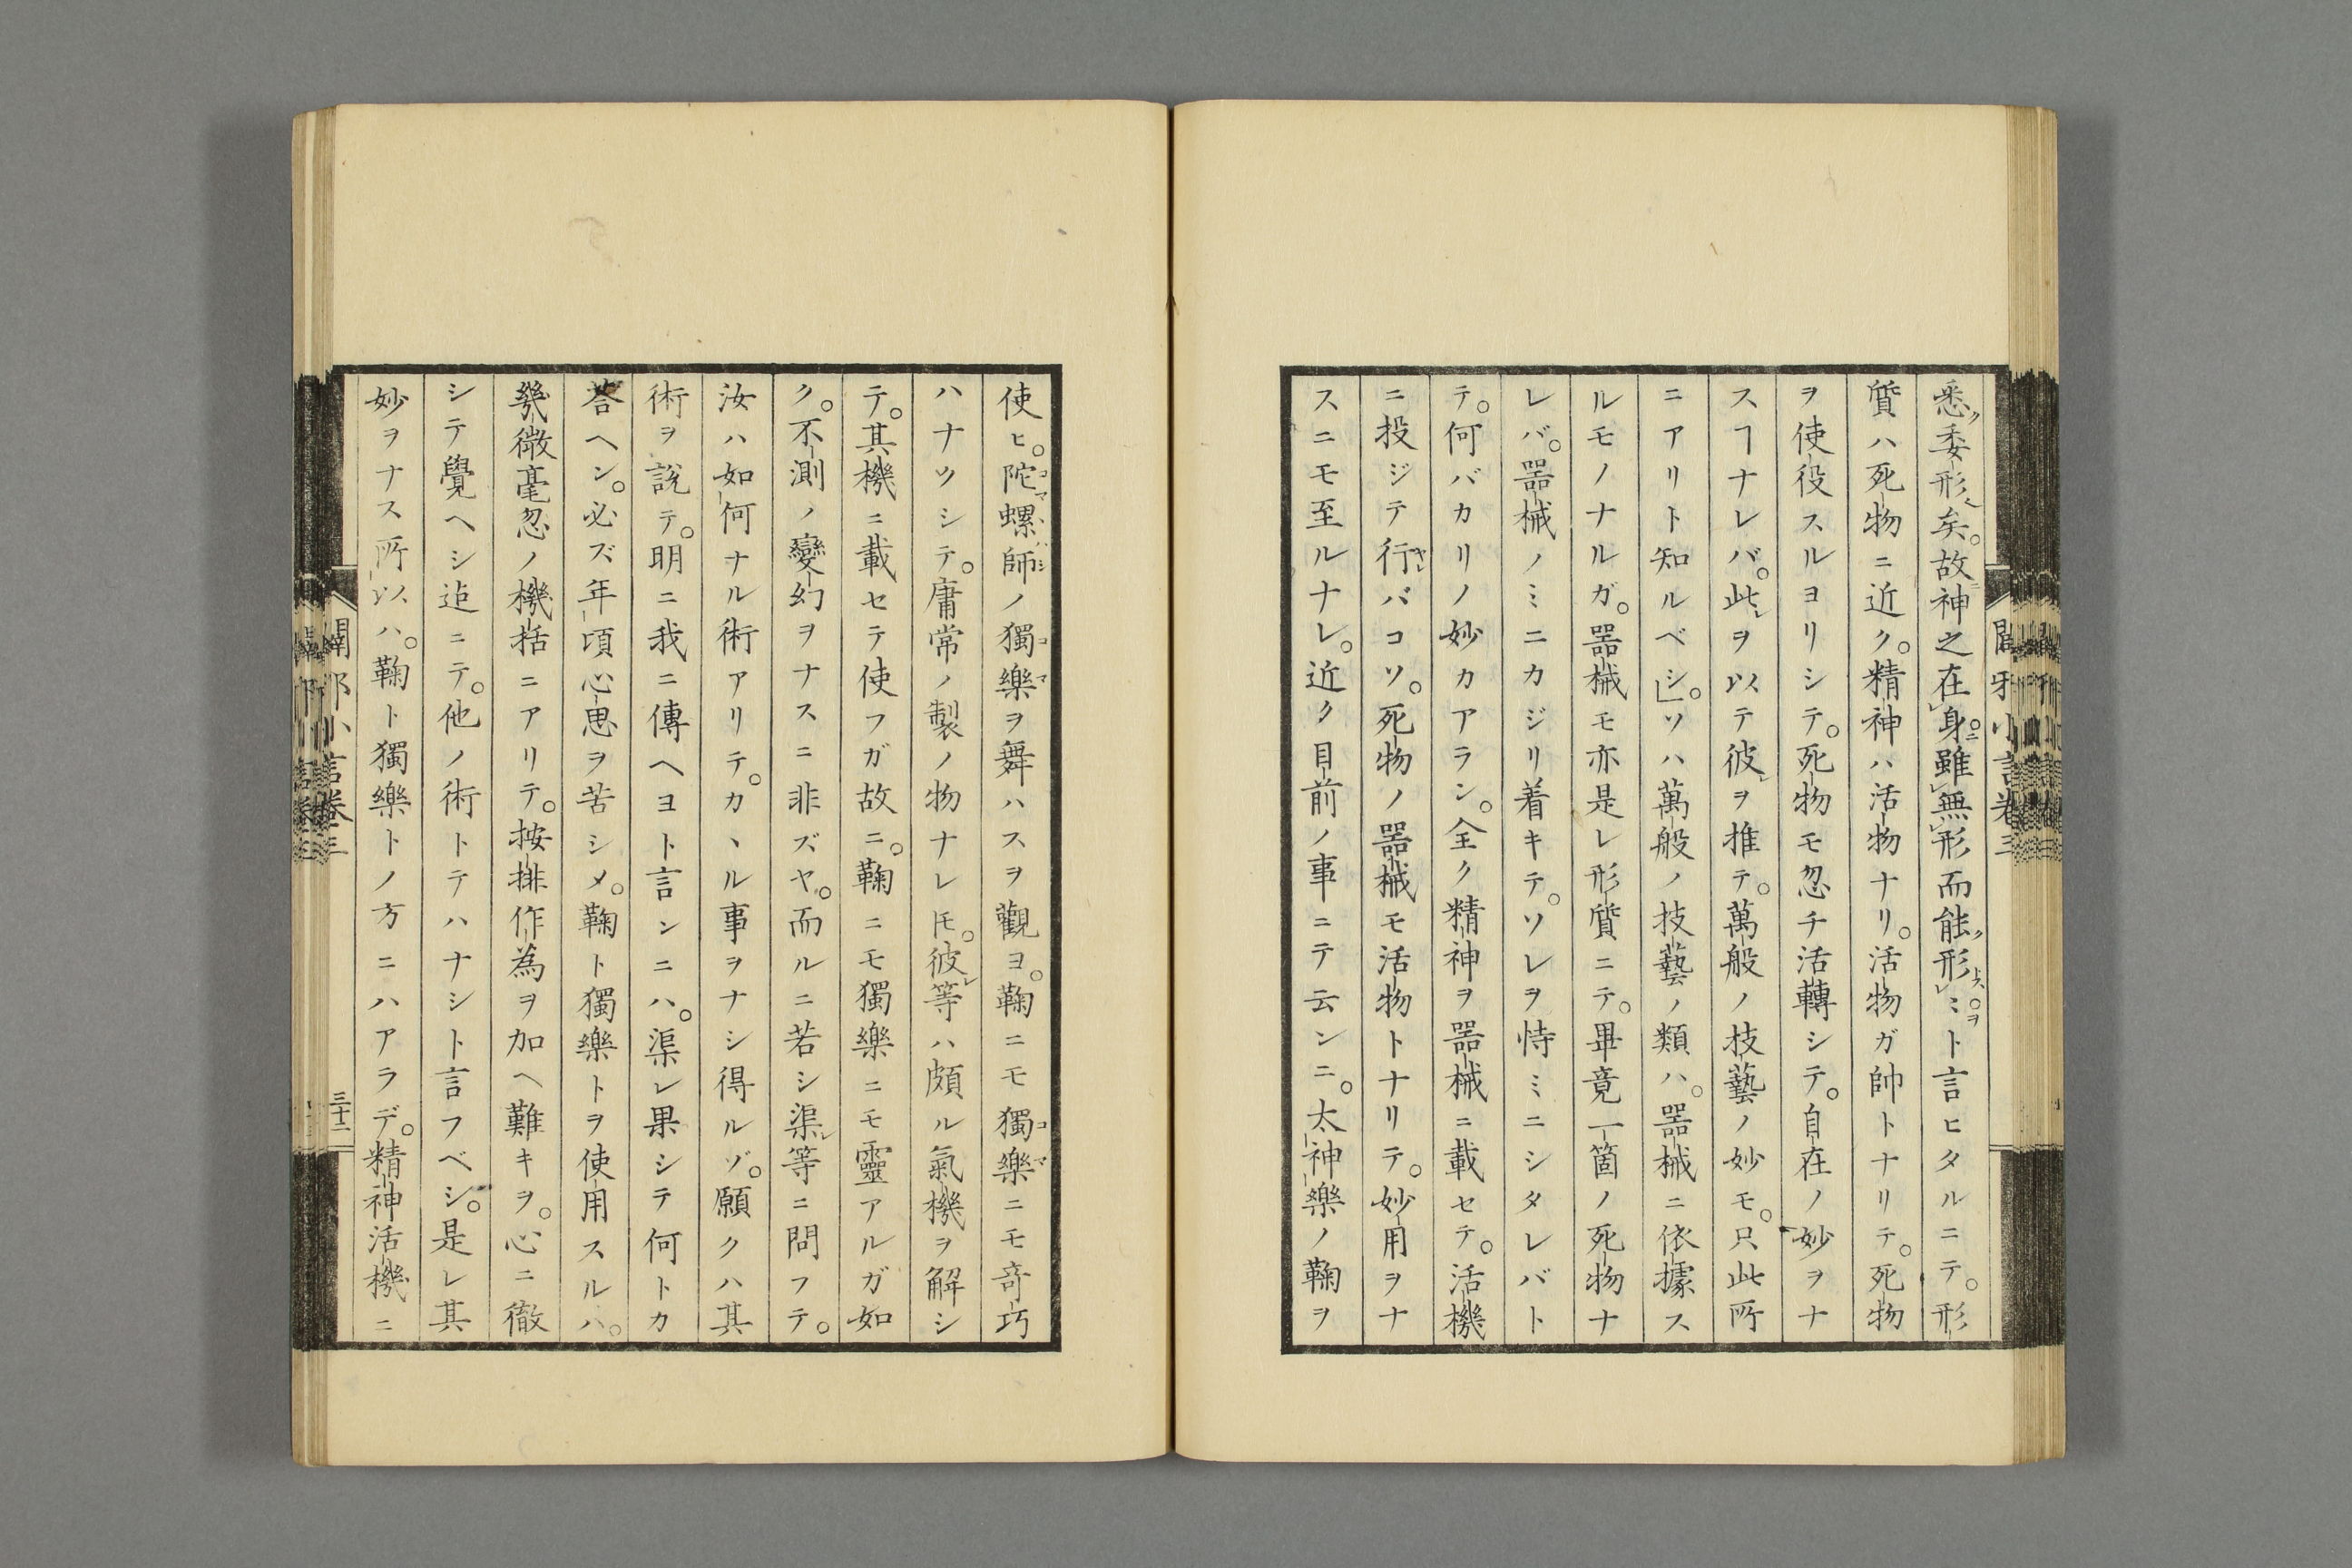 悉ク委形ス矣。故神之在身。雖無形而能ク形トス。ミト言ヒタルニテ。形
質ハ死物ニ近ク。精神ハ活物ナリ。活物ガ帥トナリテ。死物
ヲ使役スルヨリシテ。死物モ忽チ活轉シテ。自在ノ妙ヲナ
スヿナレバ。此レヲ以テ彼レヲ推テ。萬般ノ技藝ノ妙モ。只此所
ニアリト知ルベシ」。ソハ萬般ノ技藝ノ類ハ。器械ニ依據ス
ルモノナルガ。器械モ亦是レ形質ニテ。畢竟一箇ノ死物ナ
レバ。器械ノミニカジリ着キテ。ソレヲ恃ミニシタレバト
テ。何バカリノ妙カアラン。全ク精神ヲ器械ニ載セテ。活機
ニ投ジテ行バコソ。死物ノ器械モ活物トナリテ。妙用ヲナ
スニモ至ルナレ。近ク目前ノ事ニテ云ンニ。太神樂ノ鞠ヲ
使ヒ。陀螺師ノ獨樂ヲ舞ハスヲ觀ヨ。鞠ニモ獨樂ニモ奇巧
ハナツシテ。庸常ノ製ノ物ナレ𪜈。彼レ等ハ頗ル氣機ヲ解シ
テ。其機ニ載セテ使フガ故ニ。鞠ニモ獨樂ニモ靈アルガ如
ク。不測ノ變幻ヲナスニ非ズヤ。而ルニ若シ渠レ等ニ問フテ。
汝ハ如何ナル術アリテ。カヽル事ヲナシ得ルゾ。願クハ其
術ヲ說テ。明ニ我ニ傳ヘヨト言ンニハ。渠レ果シテ何トカ
荅ヘン。必ズ年頃心思ヲ苦シメ。鞠ト獨樂トヲ使用スルハ。
幾微毫忽ノ機括ニアリテ。按排作為ヲ加ヘ難キヲ。心ニ徹
シテ覺ヘシ迠ニテ。他ノ術トテハナシト言フベシ。是レ其
妙ヲナス所以ハ。鞠ト獨樂トノ方ニハアラデ。精神活機ニ
小言卷三
三十二